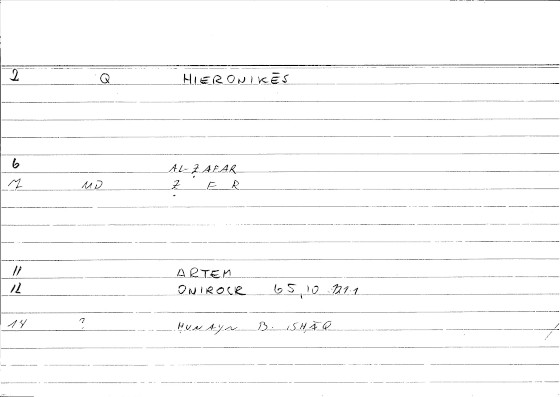 2 Q HIERONIKĒS
6 AL-ẒAFAR
7 MD Ẓ F R
11 ARTEM
12 ONIROCR 65,10
14 ? ḤUNAYN B. ISḤĀQ